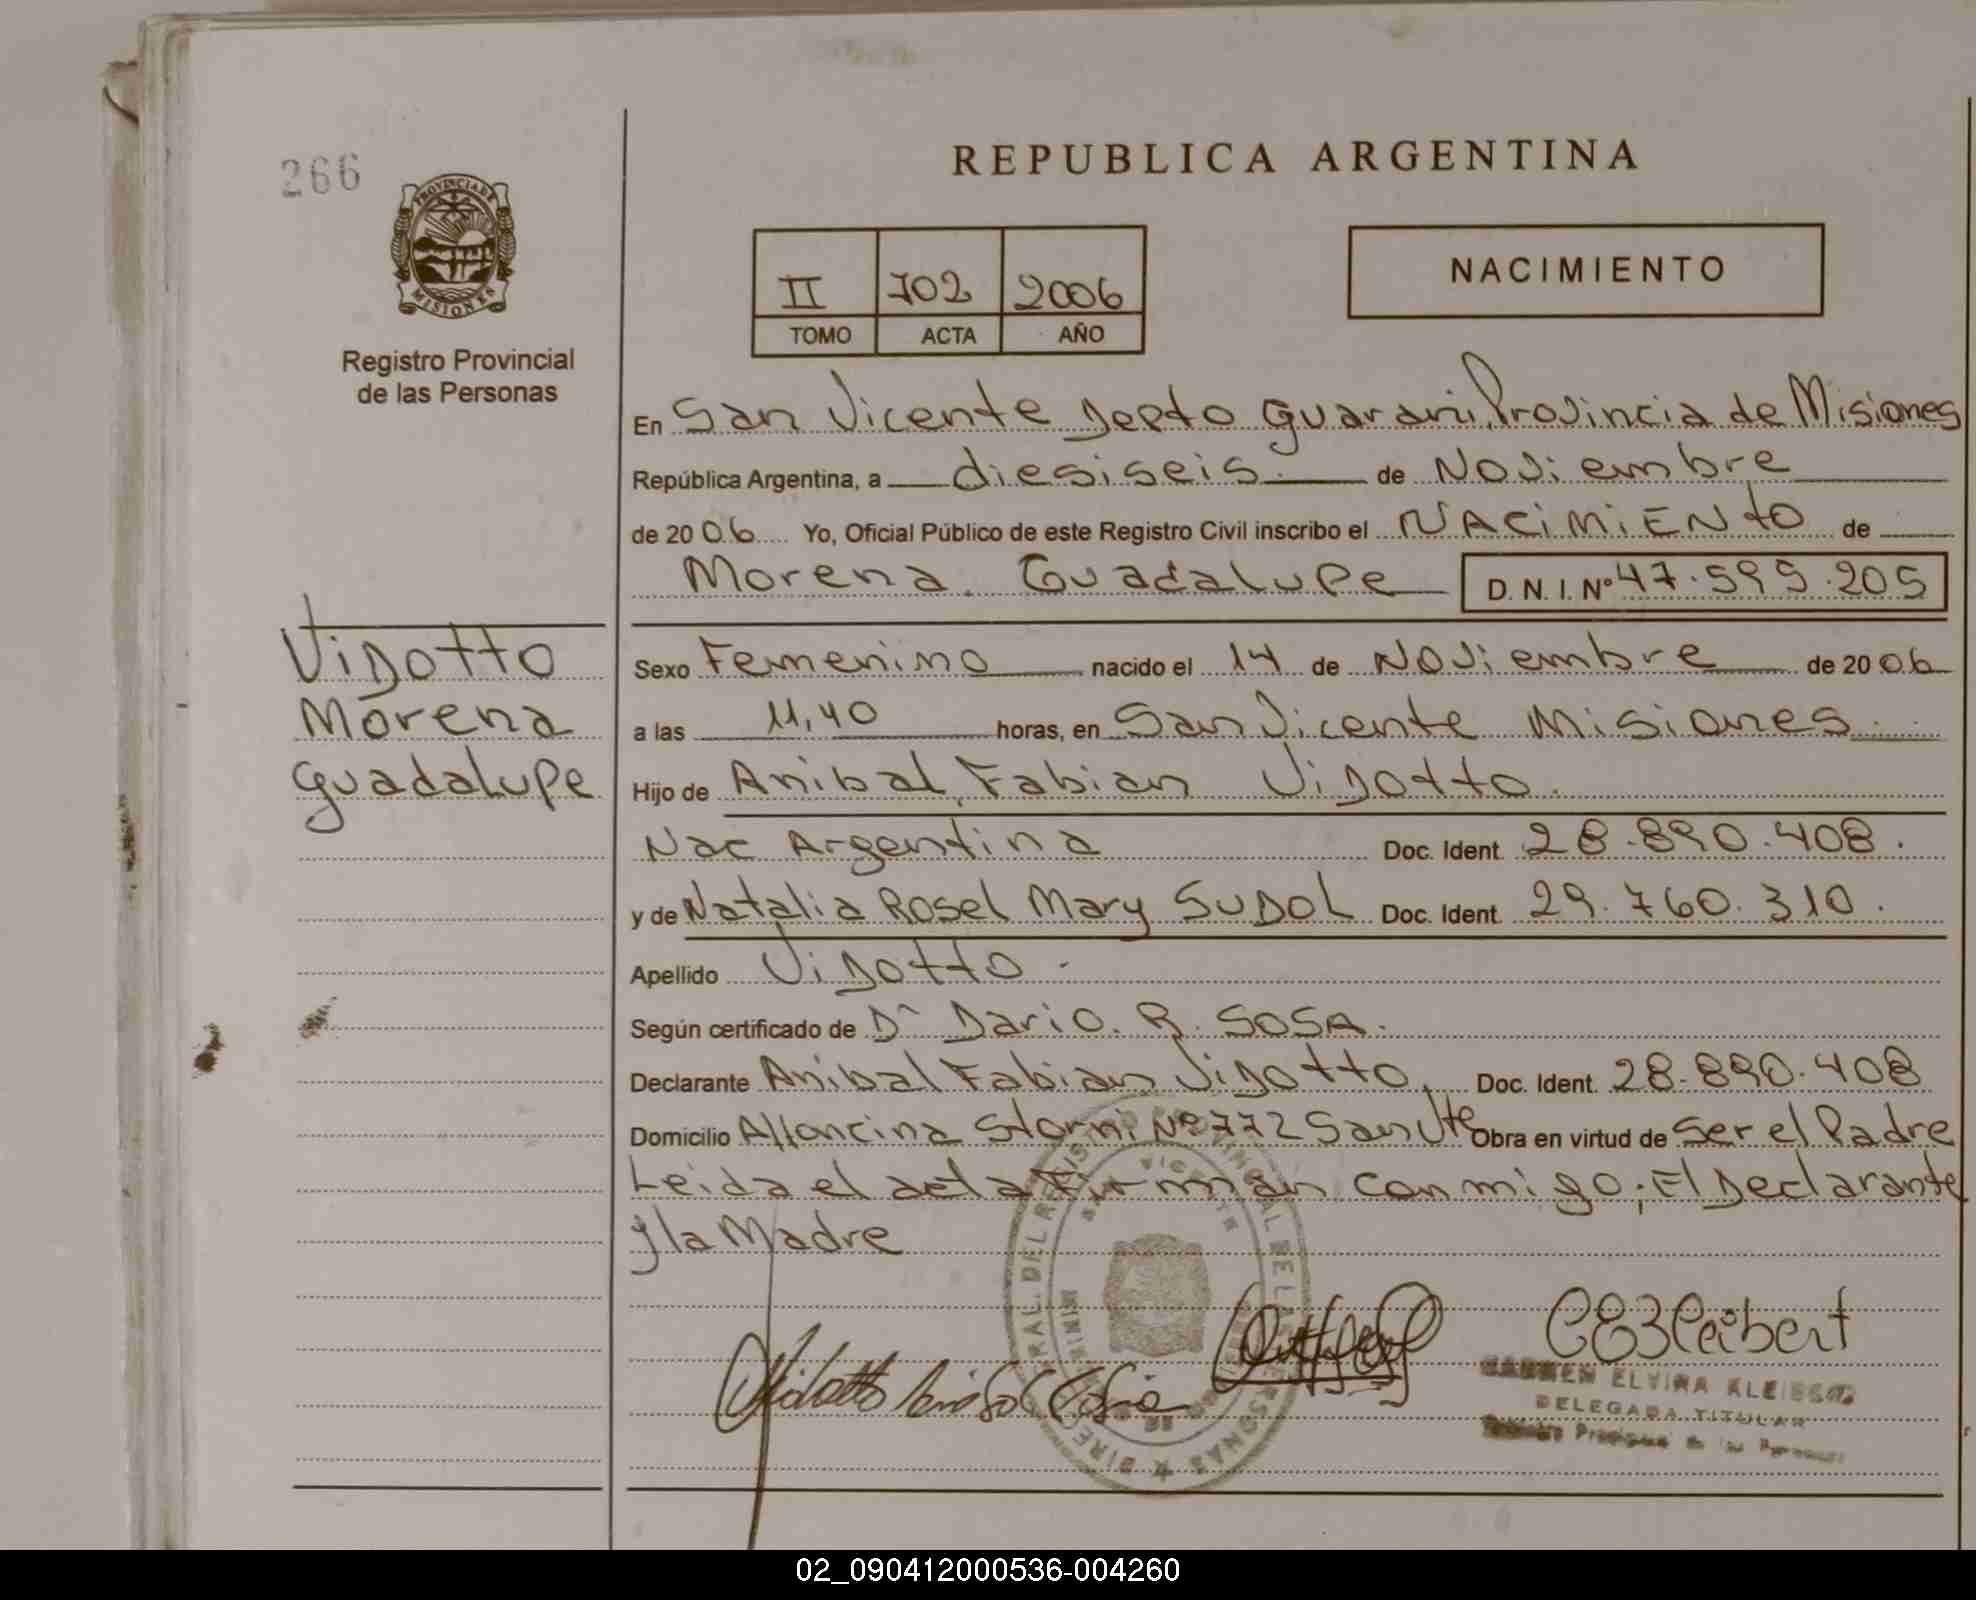 266
PROVINCIA DE
MISIONES
Registro Provincial
de las Personas
REPUBLICA ARGENTINA
II 702 2006
TOMO ACTA AÑO
NACIMIENTO
En San Vicente Depto Guarani, Provincia de Misiones
República Argentina, a diesiseis de Noviembre
de 20 06 Yo, Oficial Público de este Registro Civil inscribo el NACIMIENTO de
Morena Guadalupe D. N. I. Nº 47.595.205
Vidotto
Morena
Guadalupe
Sexo Femenino nacido el 14 de Noviembre de 20 06
a las 11,40 horas, en San Vicente Misiones
Hijo de Anibal Fabian Vidotto
Nac Argentina Doc. Ident. 28.890.408.
y de Natalia Rosel Mary SUDOL Doc. Ident. 29.760.310.
Apellido Vidotto -
Según certificado de Dr Dario. R. SOSA.
Declarante Anibal Fabian Vidotto, Doc. Ident. 28.890.408
Domicilio Alfoncina Storni Nº 772 San Vte Obra en virtud de Ser el Padre
Leida el acta Firman conmigo; El Declarante
y la Madre
SAN VICENTE
CE Kleibert
CARMEN ELVIRA KLEIBERT
DELEGADA TITULAR
02_090412000536-004260